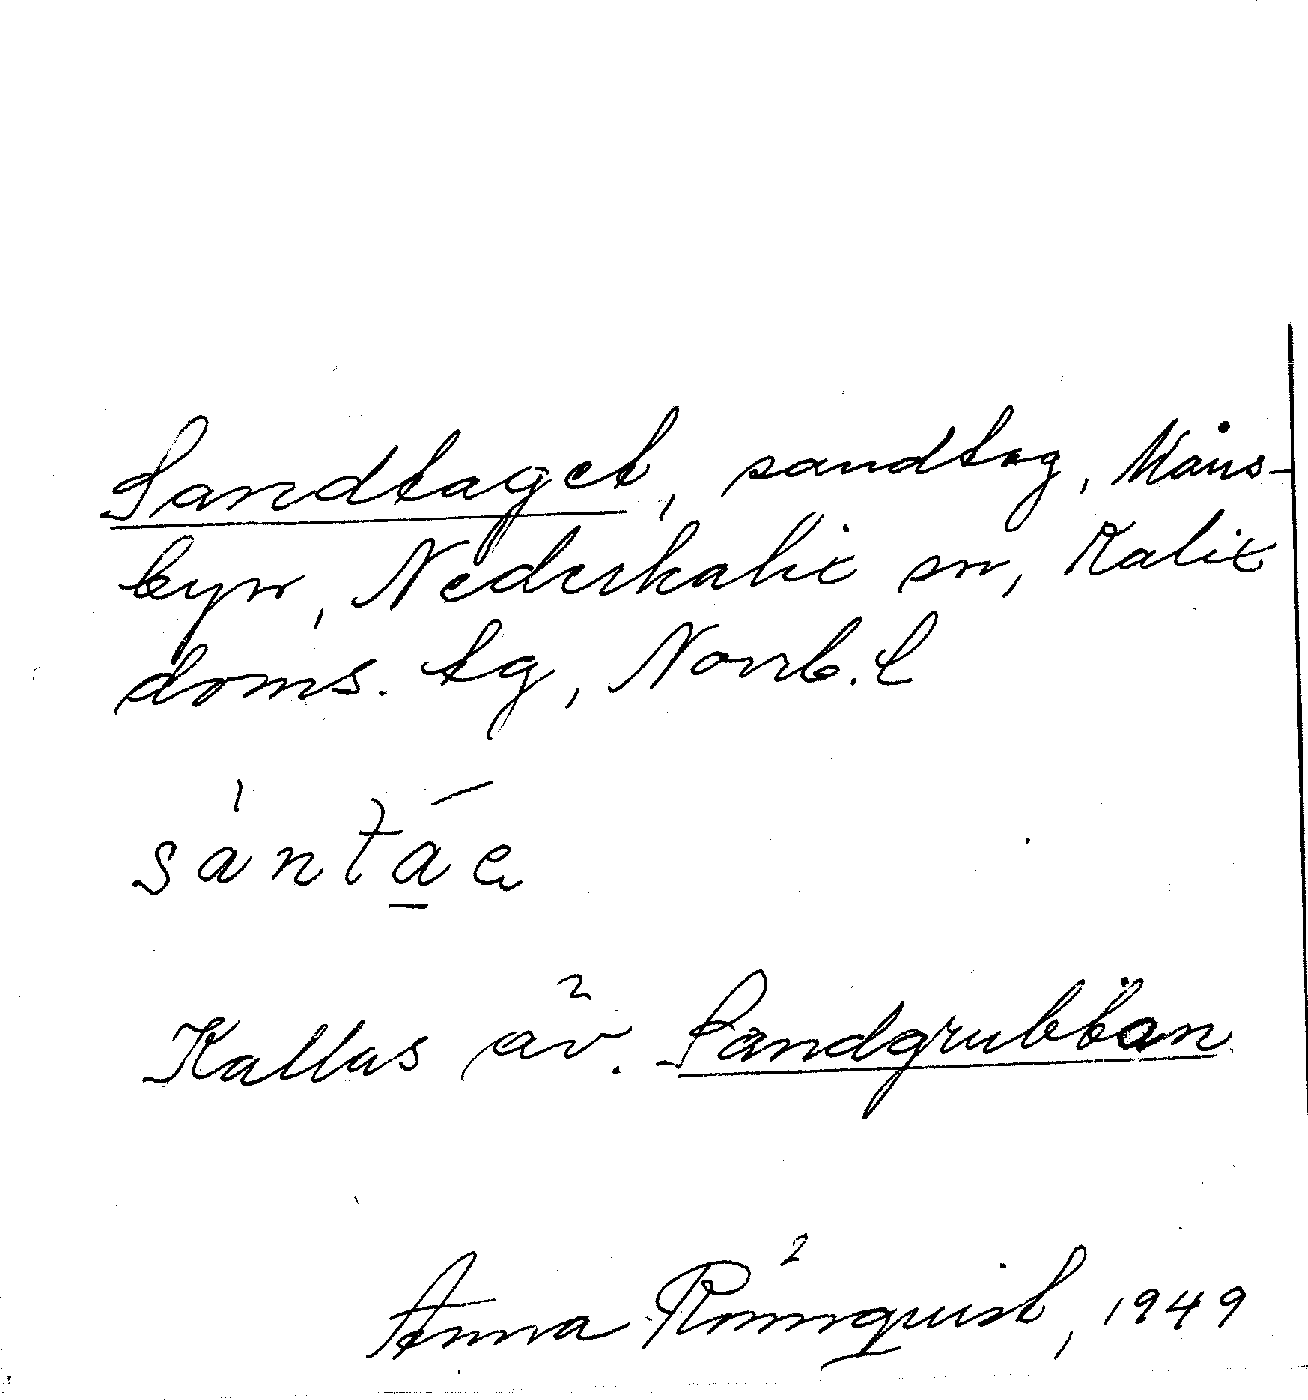 Sandtaget, sandtag, Måns-
byn, Nederkalix sn, Kalix
doms. tg, Norrb. l
Kallas äv. Sandgrubban
Anna Rönnquist, 1949